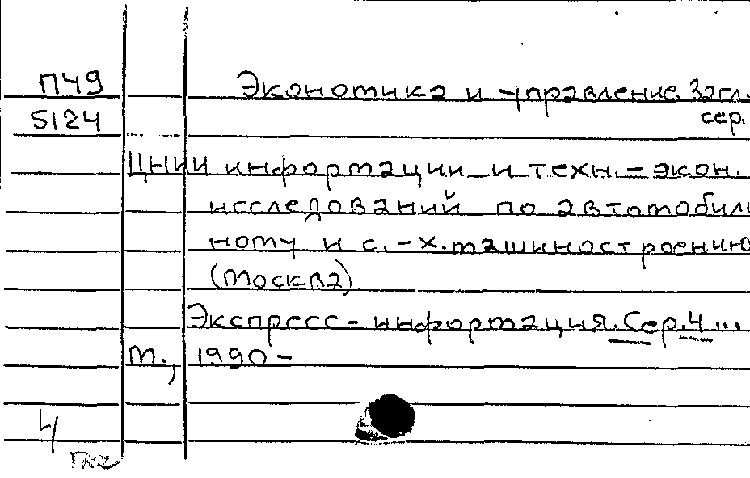 П49 Экономика и управление. Загл.
5124 сер.
ЦНИИ информации и техн.-экон.
исследований по автомобиль
ному и с.-х. машиностроению
(Москва)
Экспресс-информация. Сер. 4 ...
М., 1990-
4